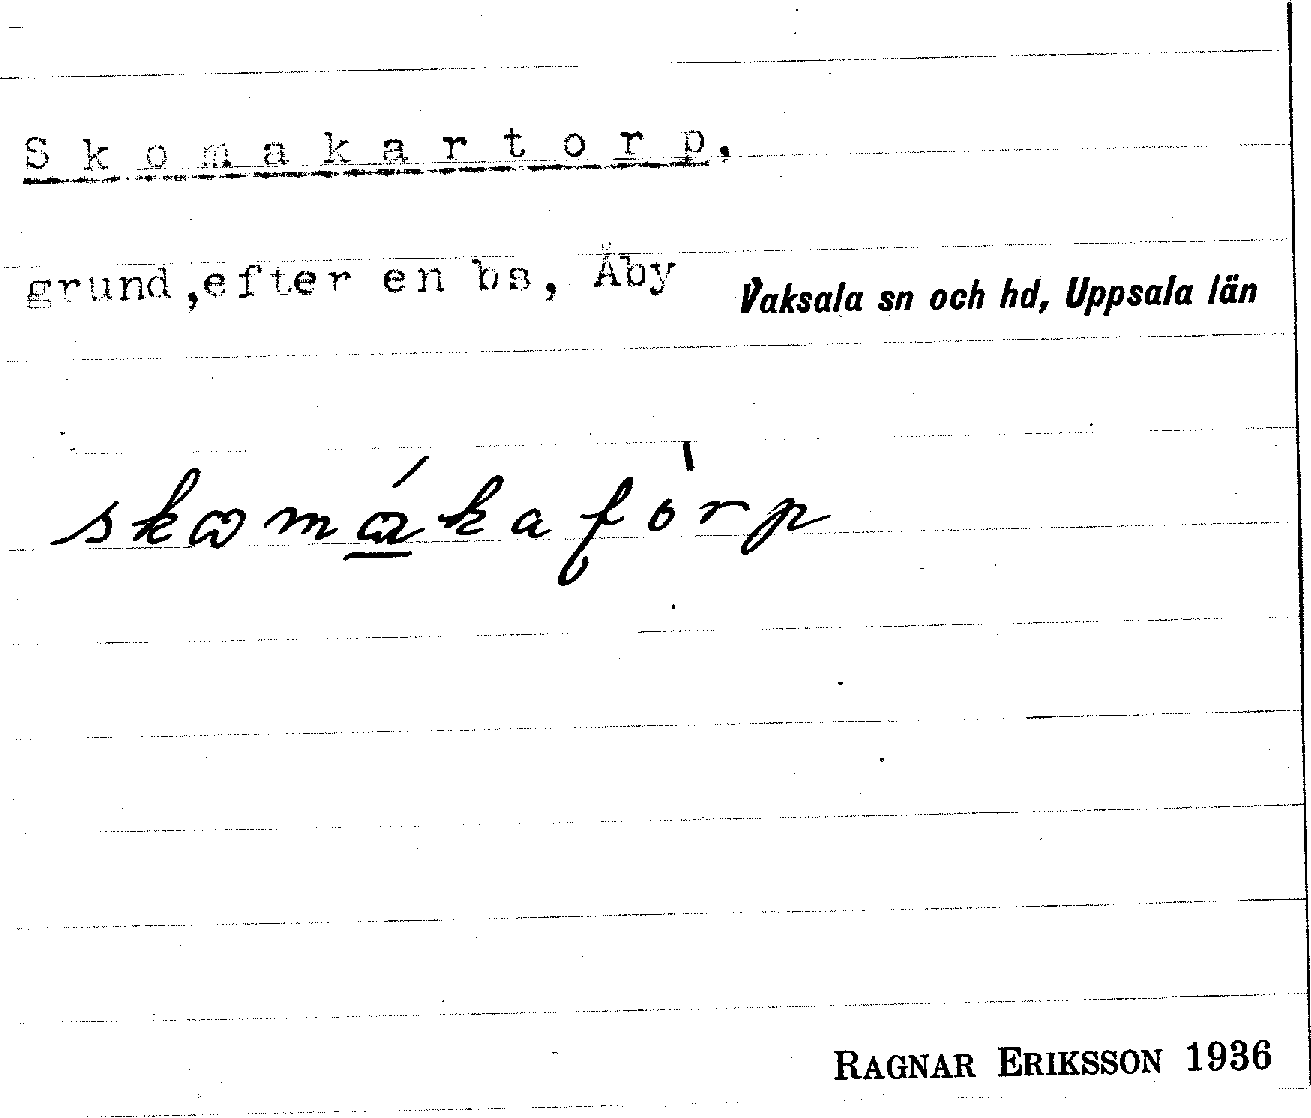 Skomakartorp.
grund,efter en bs, Åby Vaksala sn och hd, Uppsala län
skomákaƭòrp
RAGNAR ERIKSSON 1936